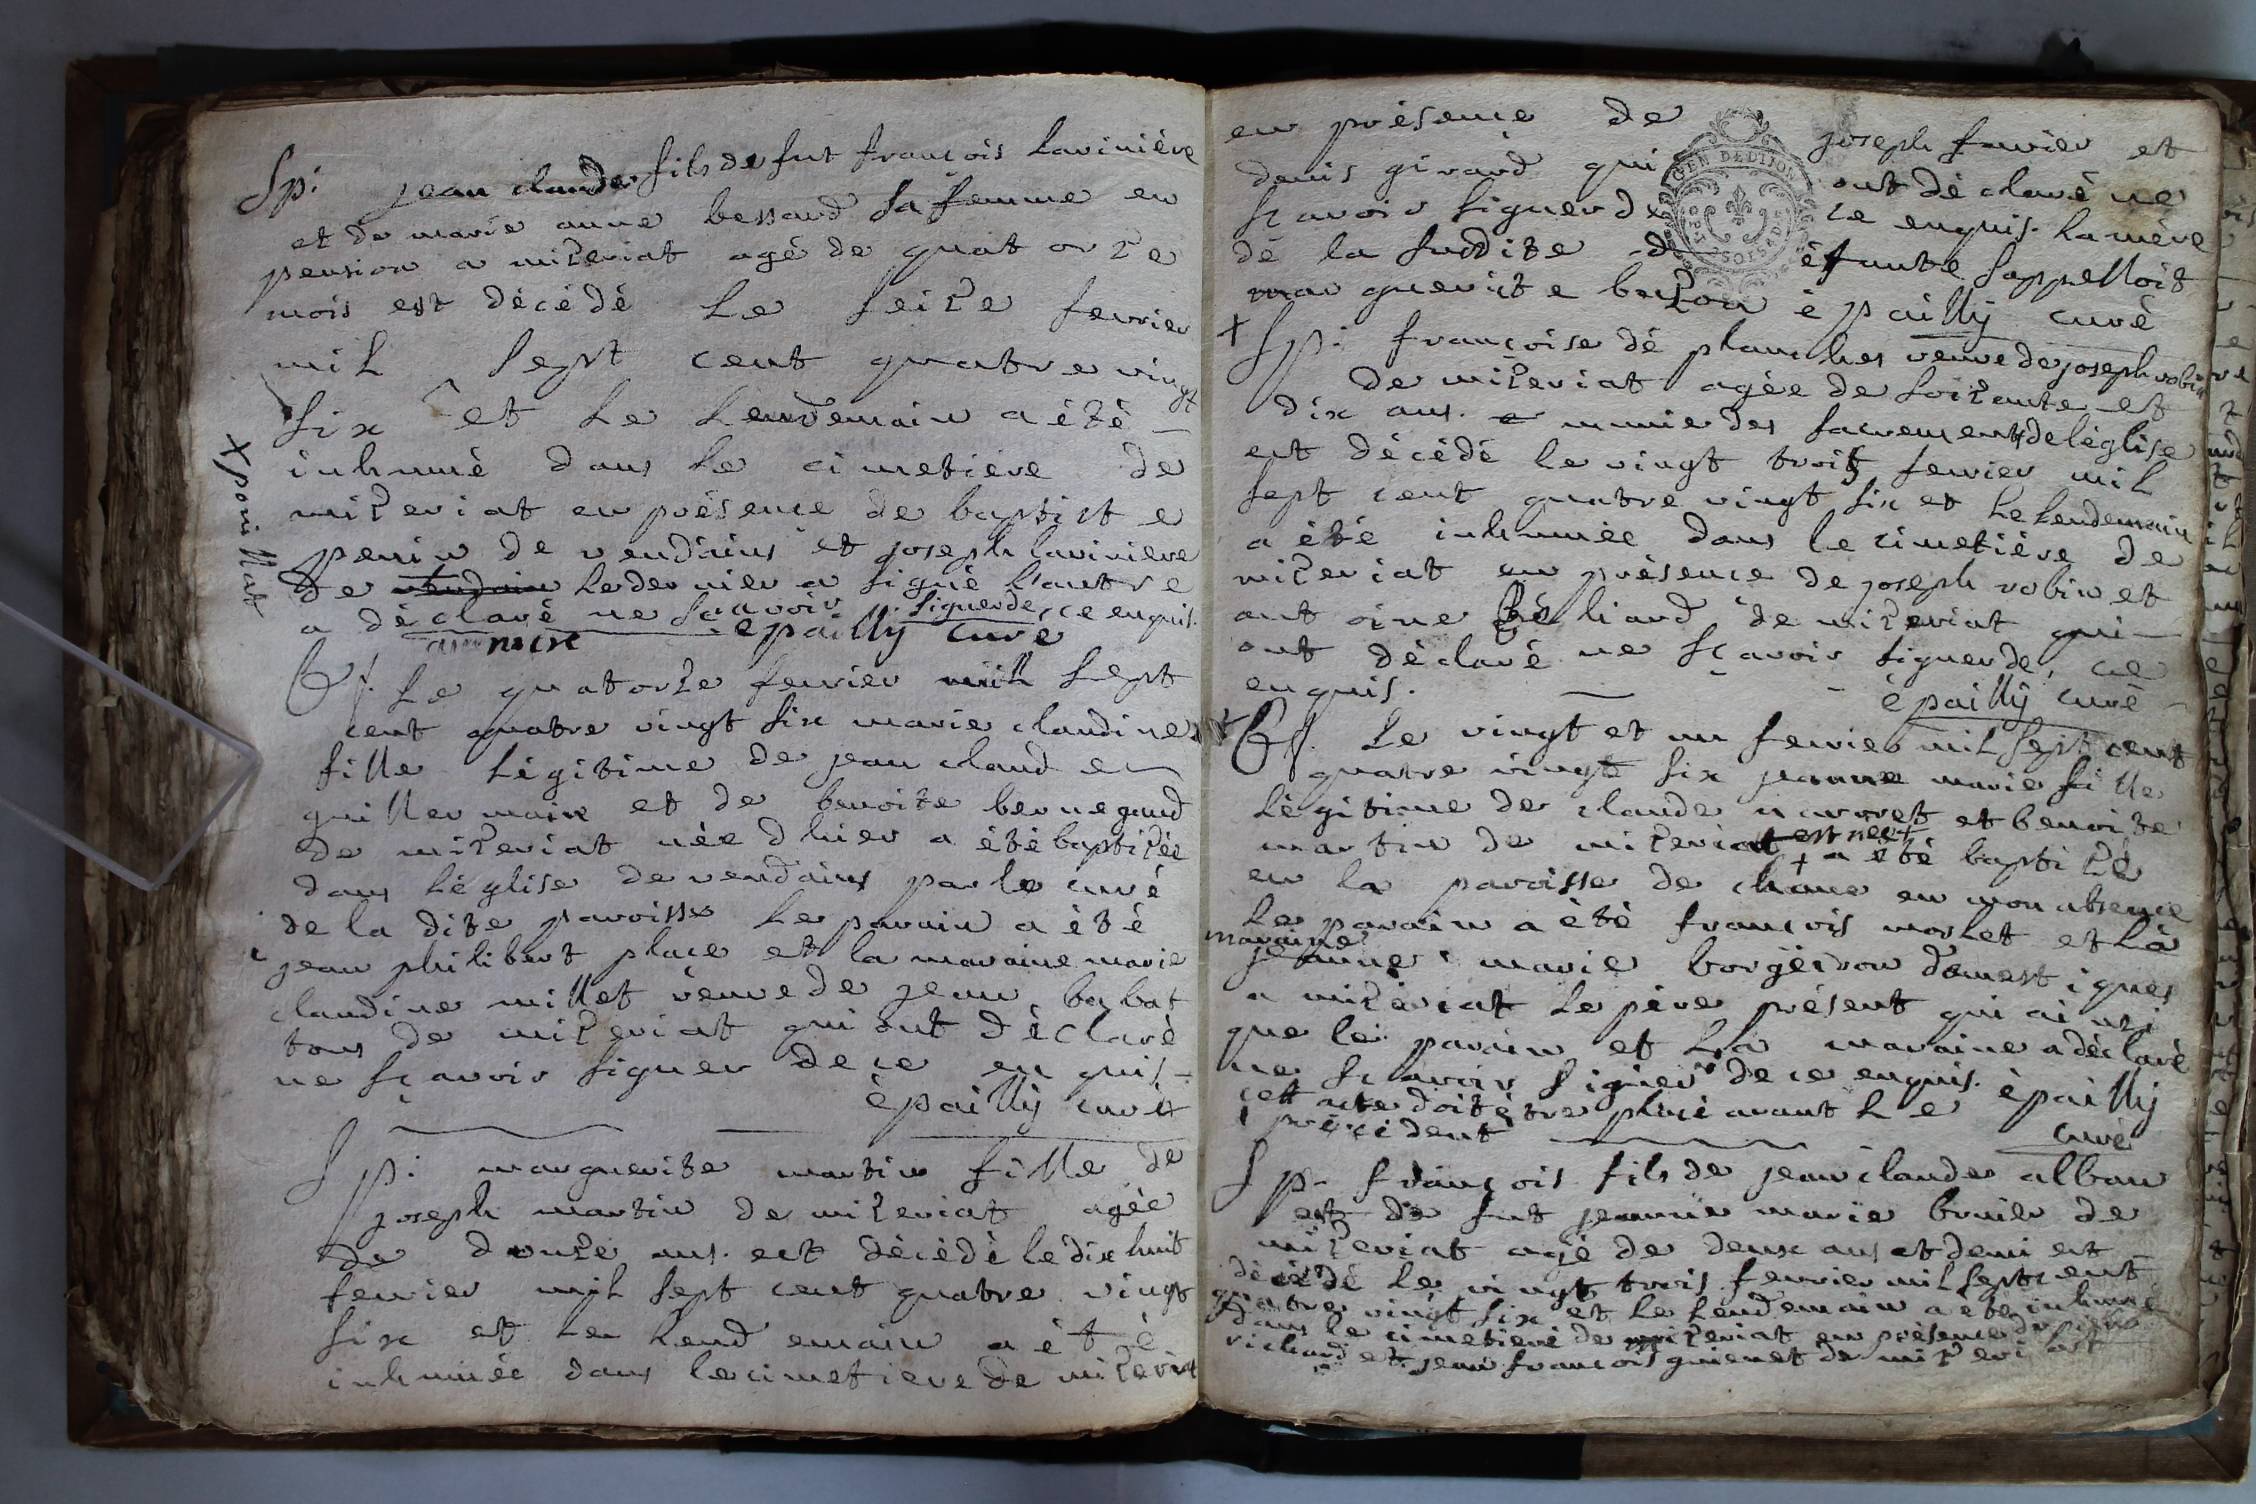 Sp. jean claude fils de fut françois laviniére
et de marie anne bessard sa femme en
pension a mizeriat agé de quatorze
mois est décédé le seize fevrier
mil sept cent quatre vingt
six et le lendemain a été
inhumé dans le cimetiére de
mizeriat en présence de baptiste
perin de vendains et joseph laviniere
X ponillat
de vendain le dernier a signé l'autre
a déclaré ne scavoir signer de ce enquis.
épailly curé
Bt. le quatorze fevrier mil sept
cent quatre vingt six marie claudine
fille légitime de jean claude
guillermain et de benoite bernegaud
de mizeriat née d hier a été baptizée
dans l'église de vendains par le curé
de la dite paroisse le parain a été
jean philibert place et la maraine marie
claudine millet veuve de jean babat
tous de mizeriat qui ont déclaré
ne sçavoir signer de ce enquis
épailly curé
Sp. marguerite martin fille de
joseph martin de mizeriat agée
de douze ans. est décédé le dix huit
fevrier mil sept cent quatre vingt
six et le lendemain a été
inhumée dans le cimetiere de mizeriat
en présence de joseph fevrier et
denis girard qui ont déclaré ne
sçavoir signer de ce enquis. la mére
dé la susdite défante sappelloit
marguerite buzon épailly curé
X Sp. françoise dé planches veuve de joseph robin
de mizeriat agée de soizante et
dix ans. munie des sacrements de léglise
est décédé le vingt trois fevrier mil
sept cent quatre vingt six et le lendemain
a été inhumée dans le cimetiére de
mizeriat en présence de joseph robin et
antoine béliard de mizeriat qui
ont déclaré ne sçavoir signer de ce
enquis. épailly curé
Bt. le vingt et un fevrier mil sept cent
quatre vingt six jeanne marie fille
légitime de claude narvret et benoite
martin de mizeriat est née + a été baptizé
en la paroisse de chane en mon absence
le parain a été françois morlet et la
maraine
jeanne marie borgeiron domestiques
a mizériat le pére présent qui ainsi
que le parain et la maraine a déclaré
ne scavoir signer de ce enquis. épailly
cet acte doit étre placé avant le curé
précident
Sp. françois fils de jean claude alban
et de fut jeanne marie bruier de
mizeriat agé de deux ans et demi est
décédé le vingt trois fevrier mil sept cent
quatre vingt six et le lendemain a été inhumé
dans le cimetieré de mizeriat en présence de
richard et jean françois guienet de mizeriat
GEN DEDIJON